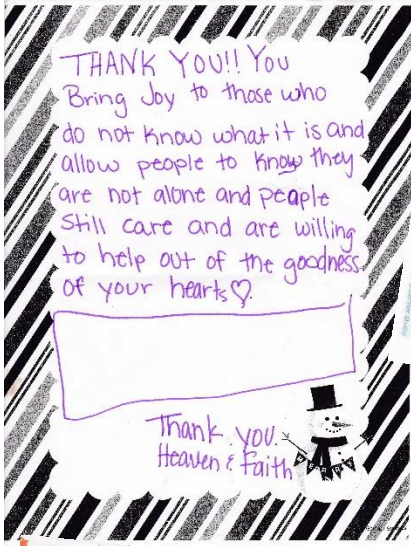 THANK YOU!! You
Bring Joy to those who
do not know what it is and
allow people to know they
are not alone and people
still care and are willing
to help out of the goodness
of your hearts♡.
Thank you.
Heaven & Faith
MERRY